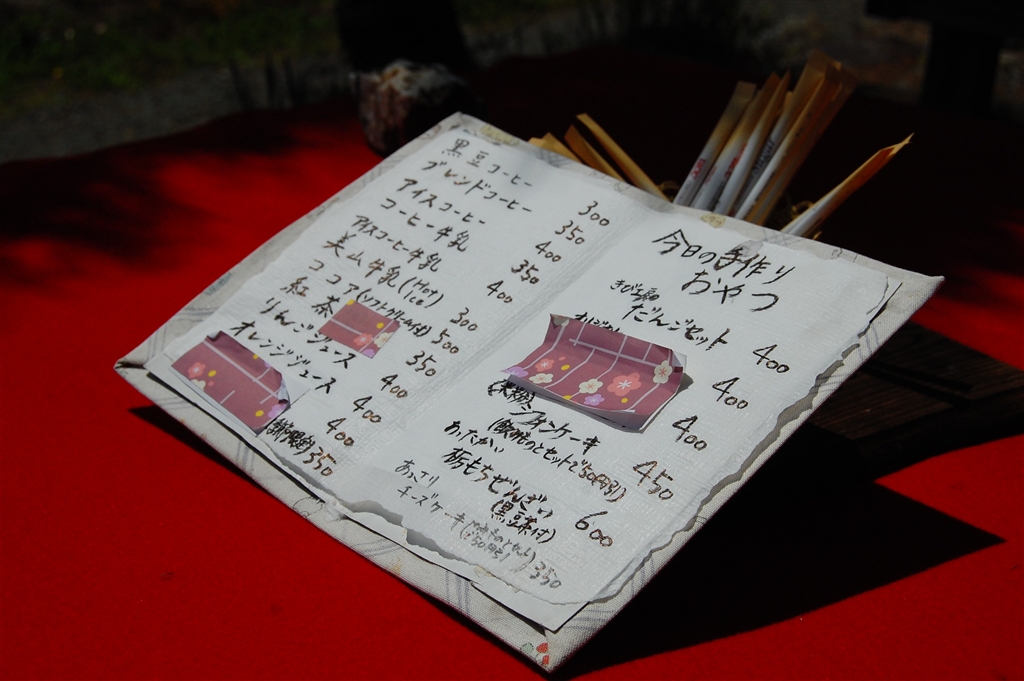 黒豆コーヒー 300
ブレンドコーヒー 350
アイスコーヒー 400
コーヒー牛乳 350
アイスコーヒー牛乳 400
美山牛乳(Hot ice) 300
ココア(ソフトクリーム付) 500
紅茶 350
りんごジュース 400
オレンジジュース 400
400
350
今日の手作り
おやつ
だんごセット 400
400
400
シフォンケーキ 450
(飲みものとセットで50円引)
あったかい
栃もちぜんざい 600
(黒豆茶付)
あっさり
チーズケーキ 350